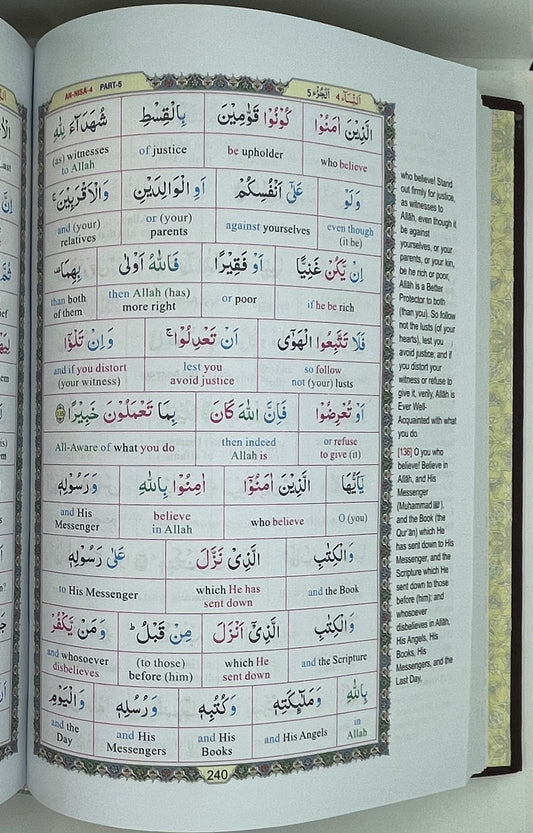 AN-NISÂ-4 PART-5
النِّسَآء 4 اَلْجُزْء 5
الَّذِيْنَ اٰمَنُوْا كُوْنُوْا قَوّٰمِيْنَ بِالْقِسْطِ شُهَدَآءَ لِلّٰهِ
who believe be upholder of justice (as) witnesses to Allah
وَلَوْ عَلٰٓى اَنْفُسِكُمْ اَوِ الْوَالِدَيْنِ وَالْاَقْرَبِيْنَ ۚ
even though (it be) against yourselves or (your) parents and (your) relatives
اِنْ يَّكُنْ غَنِيًّا اَوْ فَقِيْرًا فَاللّٰهُ اَوْلٰى بِهِمَا ۫
if he be rich or poor then Allah (has) more right than both of them
فَلَا تَتَّبِعُوا الْهَوٰٓى اَنْ تَعْدِلُوْا ۚ وَاِنْ تَلْوٗٓا
so follow not (your) lusts lest you avoid justice and if you distort (your witness)
اَوْ تُعْرِضُوْا فَاِنَّ اللّٰهَ كَانَ بِمَا تَعْمَلُوْنَ خَبِيْرًا
or refuse to give (it) then indeed Allah is of what you do All-Aware
يٰٓاَيُّهَا الَّذِيْنَ اٰمَنُوْٓا اٰمِنُوْا بِاللّٰهِ وَرَسُوْلِهٖ
O (you) who believe believe in Allah and His Messenger
وَالْكِتٰبِ الَّذِيْ نَزَّلَ عَلٰى رَسُوْلِهٖ
and the Book which He has sent down to His Messenger
وَالْكِتٰبِ الَّذِيْٓ اَنْزَلَ مِنْ قَبْلُ ؕ وَمَنْ يَّكْفُرْ
and the Scripture which He sent down (to those) before (him) and whosoever disbelieves
بِاللّٰهِ وَمَلٰٓئِكَتِهٖ وَكُتُبِهٖ وَرُسُلِهٖ وَالْيَوْمِ
in Allah and His Angels and His Books and His Messengers and the Day
240
who believe! Stand
out firmly for justice,
as witnesses to
Allâh, even though it
be against
yourselves, or your
parents, or your kin,
be he rich or poor,
Allâh is a Better
Protector to both
(than you). So follow
not the lusts (of your
hearts), lest you
avoid justice; and if
you distort your
witness or refuse to
give it, verily, Allâh is
Ever Well-
Acquainted with what
you do.
[136] O you who
believe! Believe in
Allâh, and His
Messenger
(Muhammad ﷺ),
and the Book (the
Qur'ân) which He
has sent down to His
Messenger, and the
Scripture which He
sent down to those
before (him); and
whosoever
disbelieves in Allâh,
His Angels, His
Books, His
Messengers, and the
Last Day,